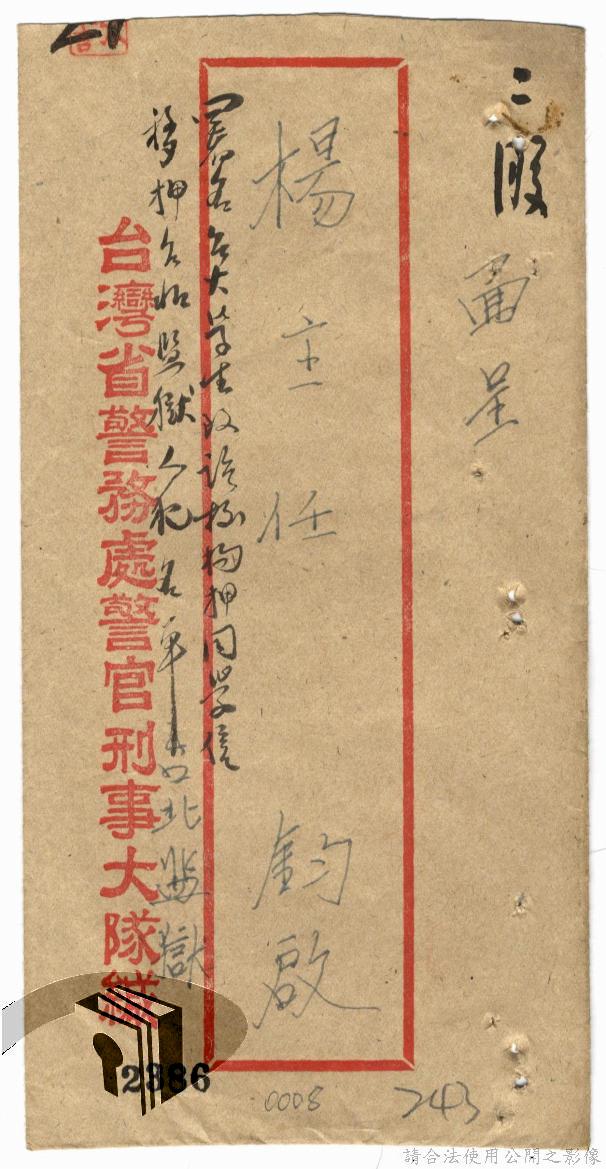 二股
面呈
楊主任 鈞啟
署名台大學生致該校拘押同學信
移押台北監獄人犯名單
台北監獄
台灣省警務處警官刑事大隊緘
2386
0008
243
請合法使用公開之影像